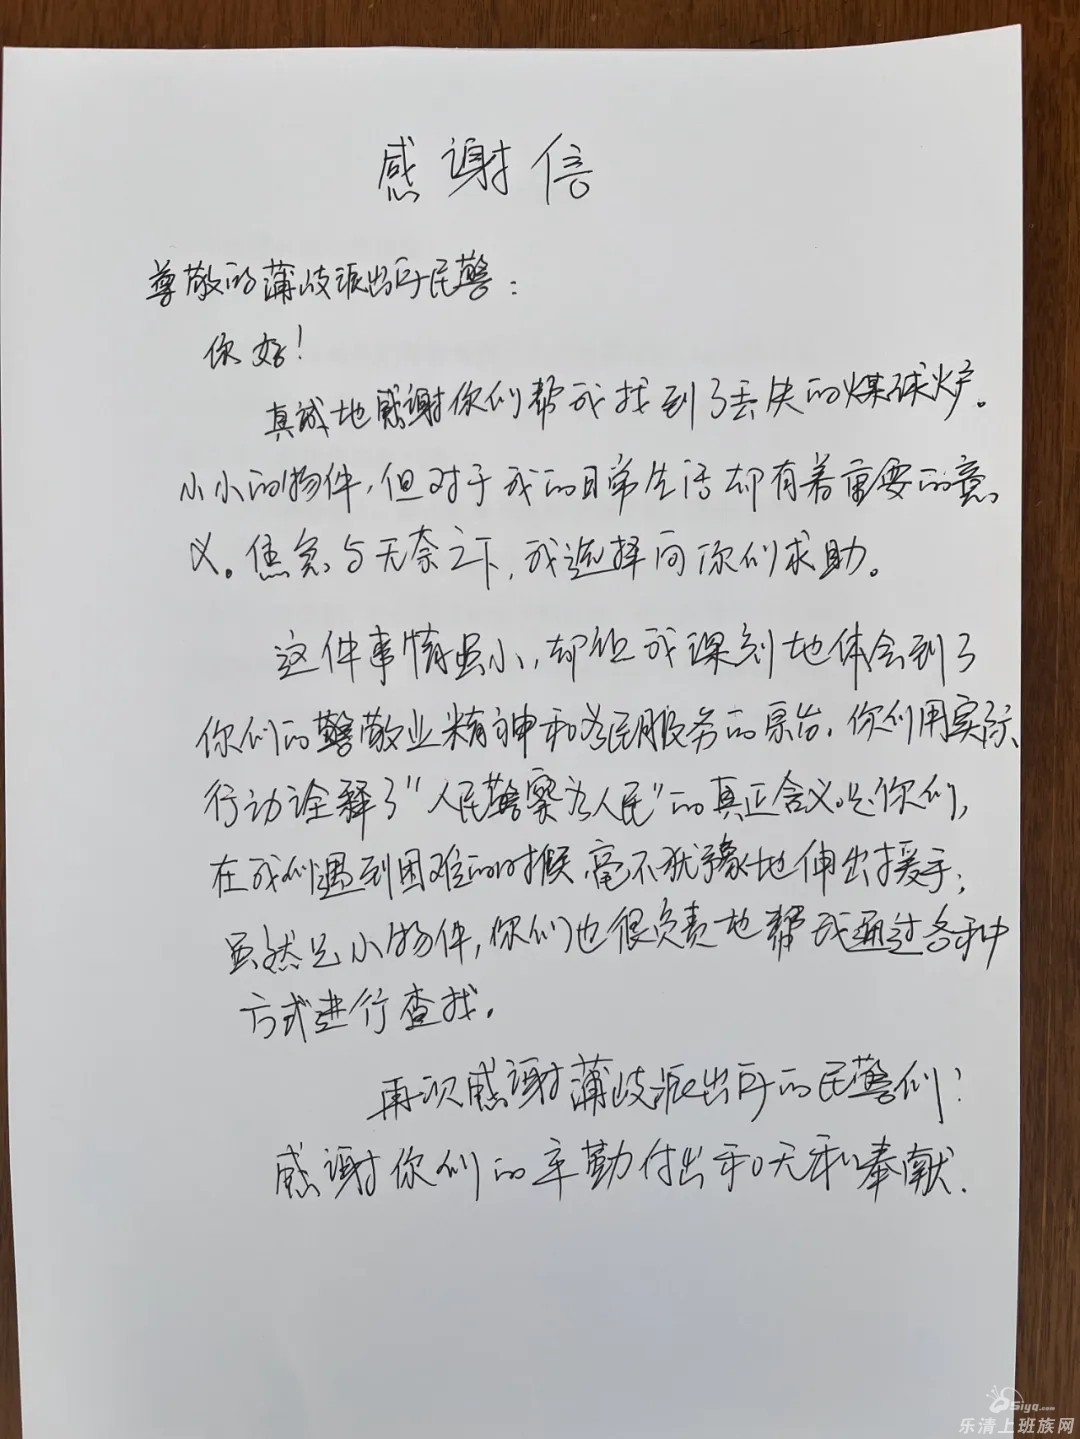 感谢信
尊敬的蒲岐派出所民警：
你好！
真诚地感谢你们帮我找到了丢失的煤球炉。
小小的物件，但对于我的日常生活却有着重要的意
义。焦急与无奈之下，我选择向你们求助。
这件事情虽小，却让我深刻地体会到了
你们的警敬业精神和为民服务的宗旨，你们用实际
行动诠释了“人民警察为人民”的真正含义。是你们，
在我们遇到困难的时候，毫不犹豫地伸出援手；
虽然是小物件，你们也很负责地帮我通过各种
方式进行查找。
再次感谢蒲岐派出所的民警们！
感谢你们的辛勤付出和无私奉献.
Siyq.com
乐清上班族网